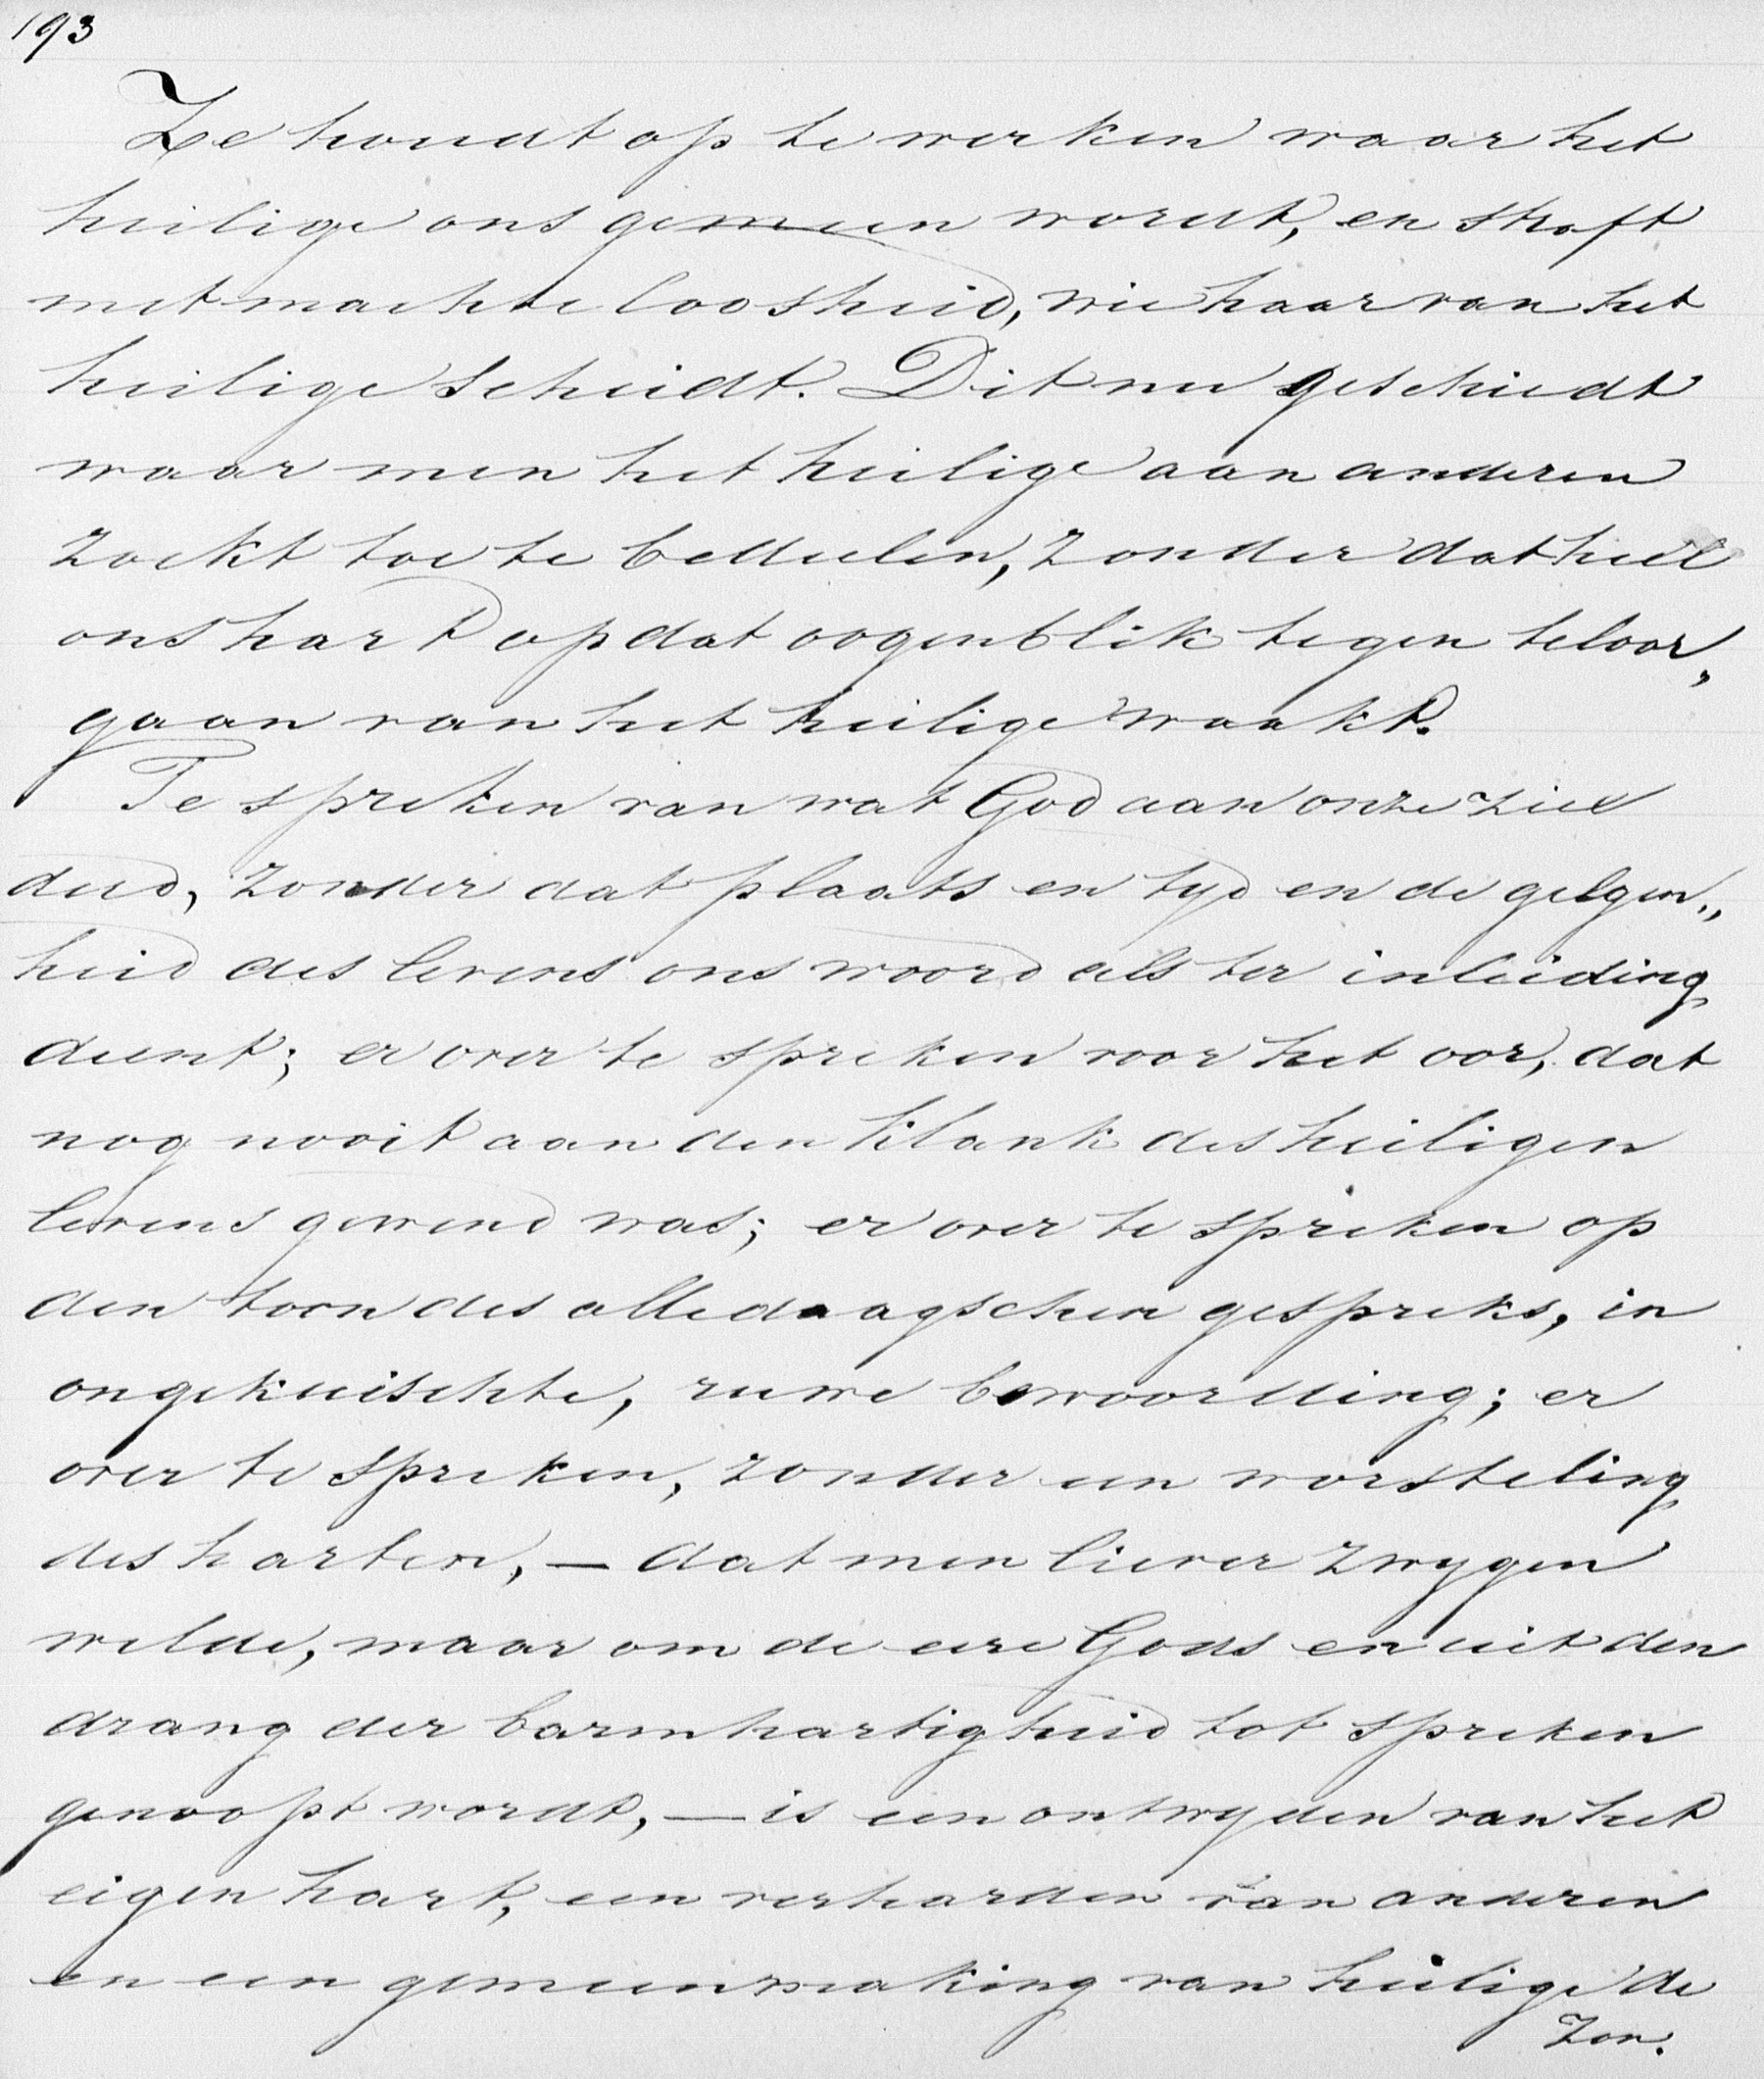 193
Ze houdt op te werken waar het
heilige ons gemeen wordt, en straft
met machteloosheid, wie haar van het
heilige scheidt. Dit nu geschiedt
waar men het heilige aan anderen
zoekt toe te bedeelen, zonder dat heel
ons hart op dat oogenblik tegen teloor„
gaan van het heilige waakt.
Te spreken van wat God aan onze ziel
deed, zonder dat plaats en tyd en de gelgen„
heid des levens ons woord als ter inleiding
dient; er over te spreken voor het oor, dat
nog nooit aan den klank des heiligen
levens gewend was; er over te spreken op
den toon des alledaagschen gespreks, in
ongekuischte, ruwe bewoording; er
over te spreken, zonder een worsteling
des harten, — dat men liever zwygen
wilde, maar om de eere Gods en uit den
drang der barmhartigheid tot spreken
genoopt wordt, — is een ontwyden van het
eigen hart, een verharden van anderen
en een gemeenmaking van heilige de
Zon.